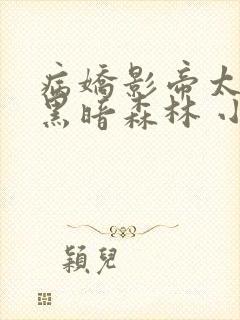 病嬌影帝太
黑暗森林 小
穎兒